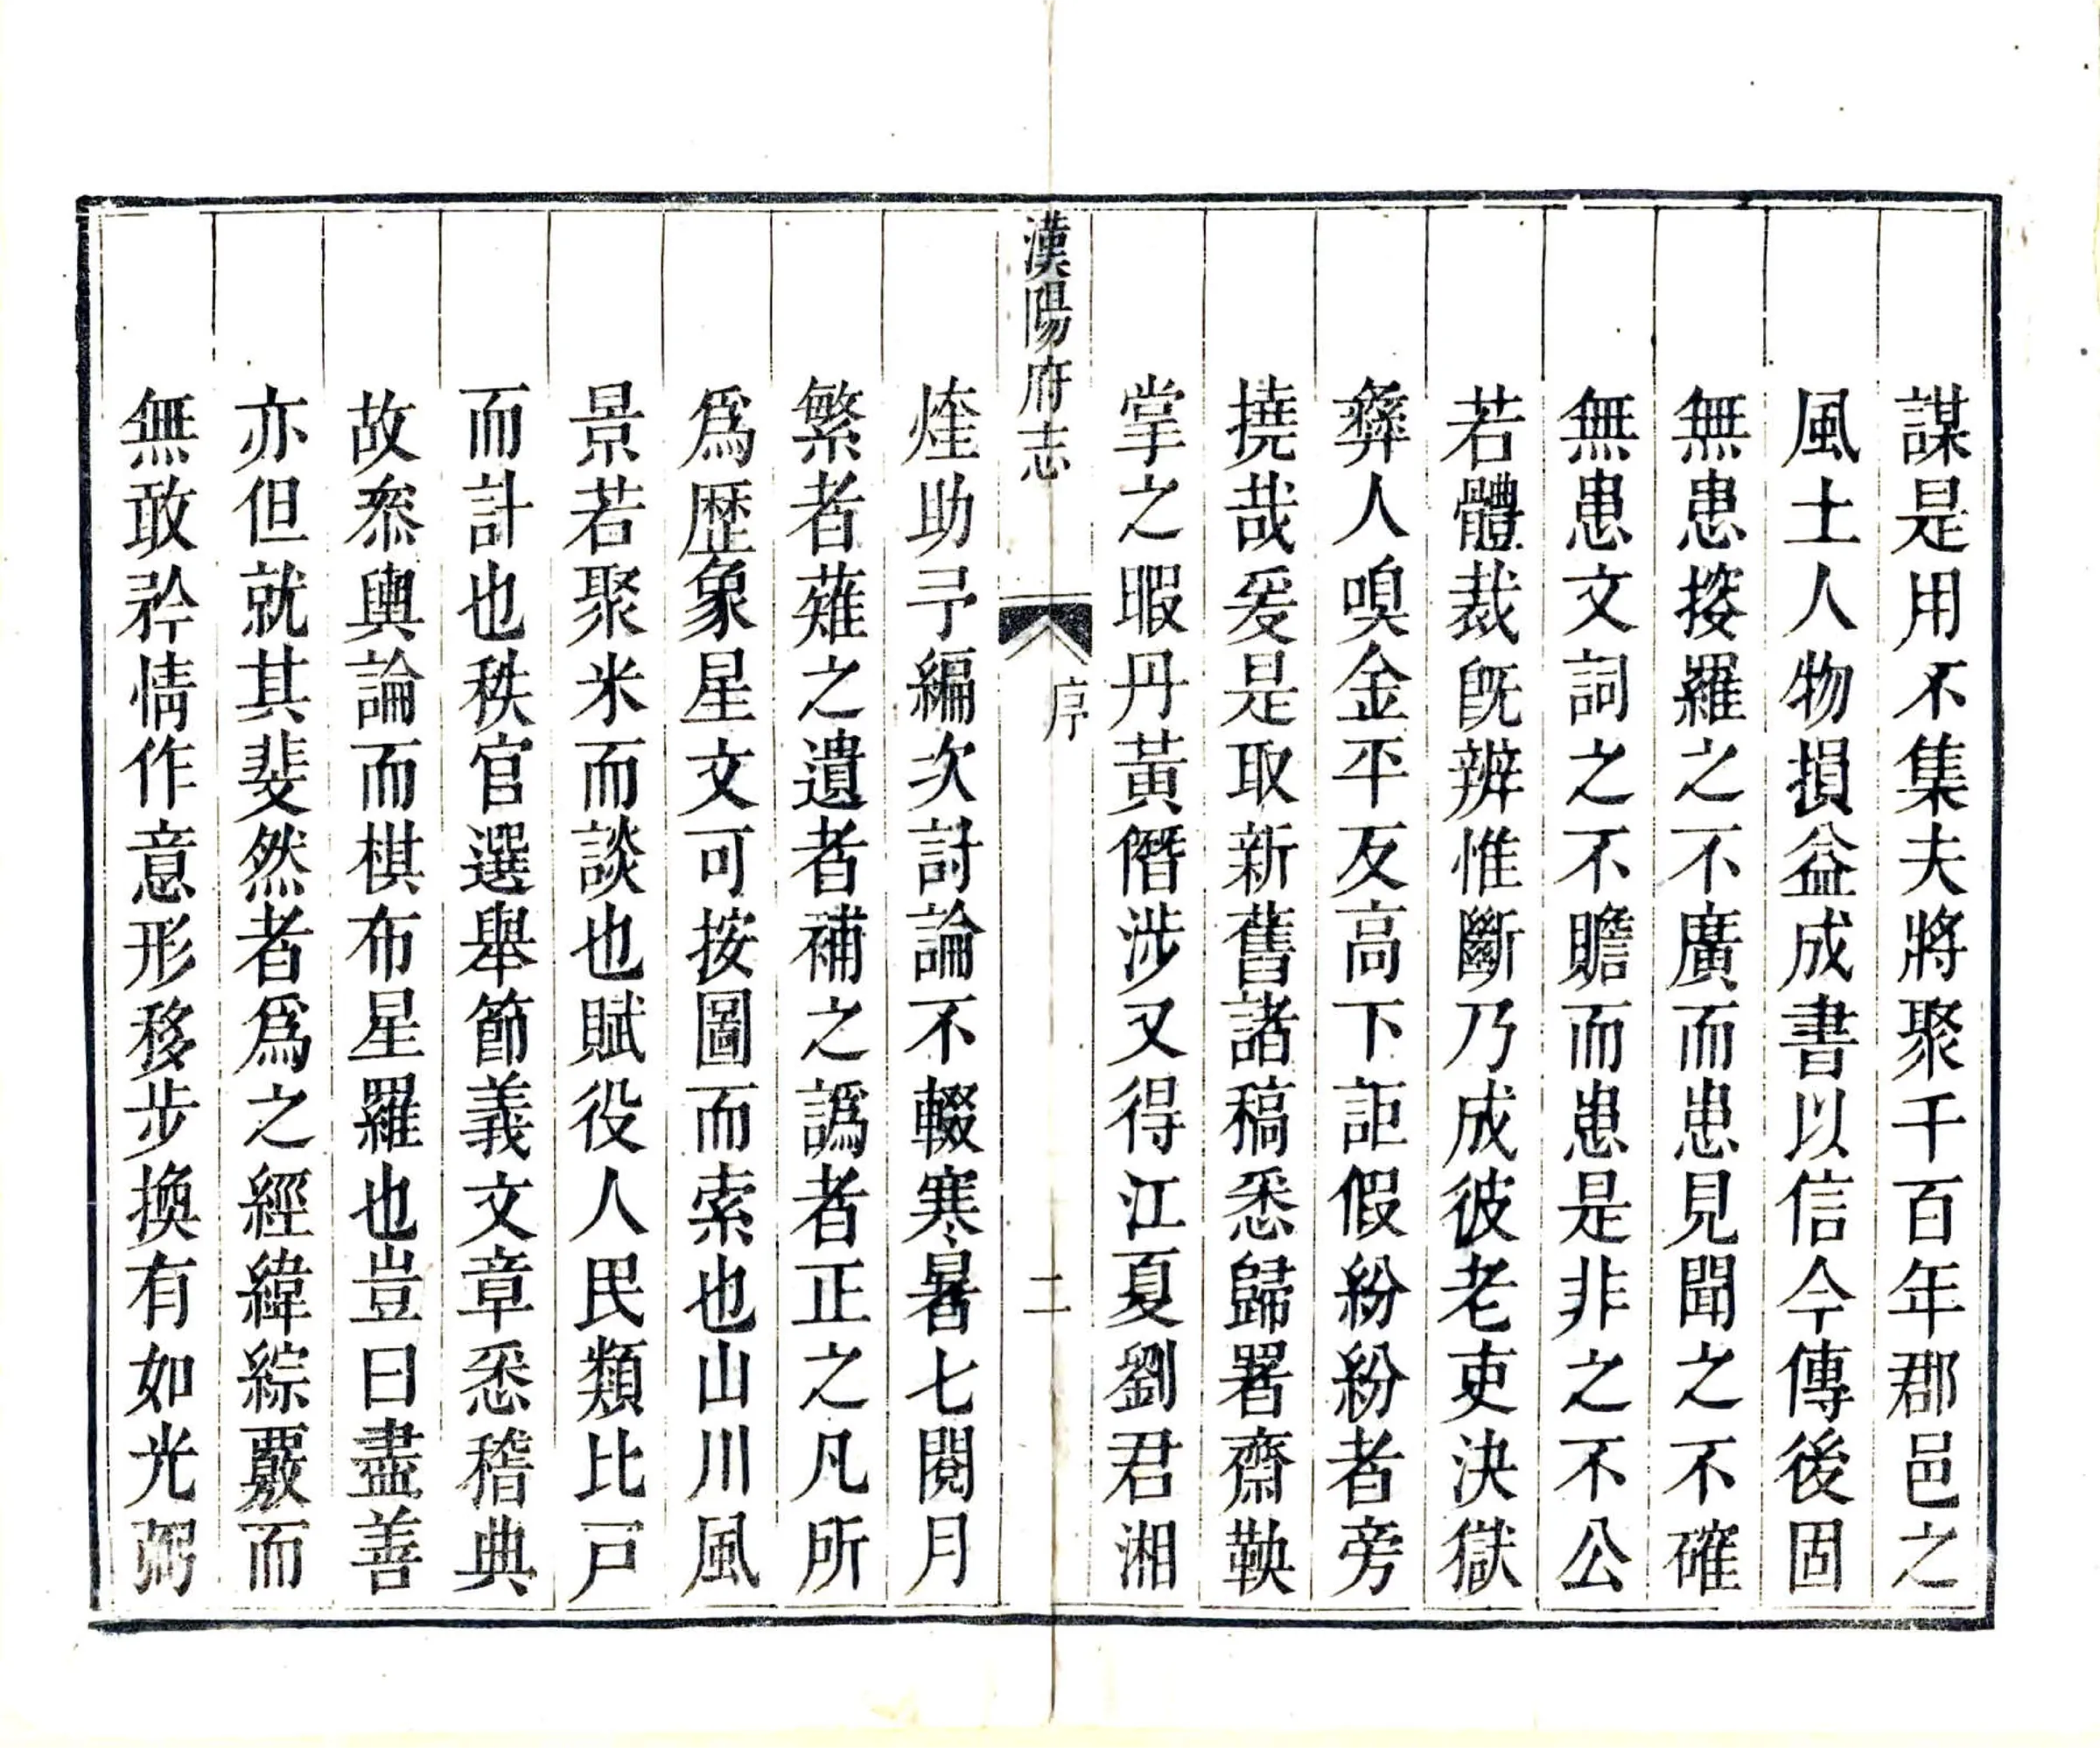 謀是用不集夫將聚千百年郡邑之
風土人物損益成書以信今傳後固
無患㨪羅之不廣而患見聞之不確
無患文詞之不贍而患是非之不公
若體裁旣辨惟斷乃成彼老吏決獄
彛人嗅金平反高下詎假紛紛者旁
撓哉爰是取新舊諸稿悉歸署齋鞅
掌之暇丹黃僭涉又得江夏劉君湘
漢陽府志
序
二
煃助予編次討論不輟寒暑七閱月
繁者薙之遺者補之譌者正之凡所
爲歴象星文可按圖而索也山川風
景若聚米而談也賦役人民類比戸
而計也秩官選舉節義文章悉稽典
故叅輿論而棋布星羅也豈曰盡善
亦但就其斐然者爲之經緯綜覈而
無敢矜情作意形移步換有如光弼